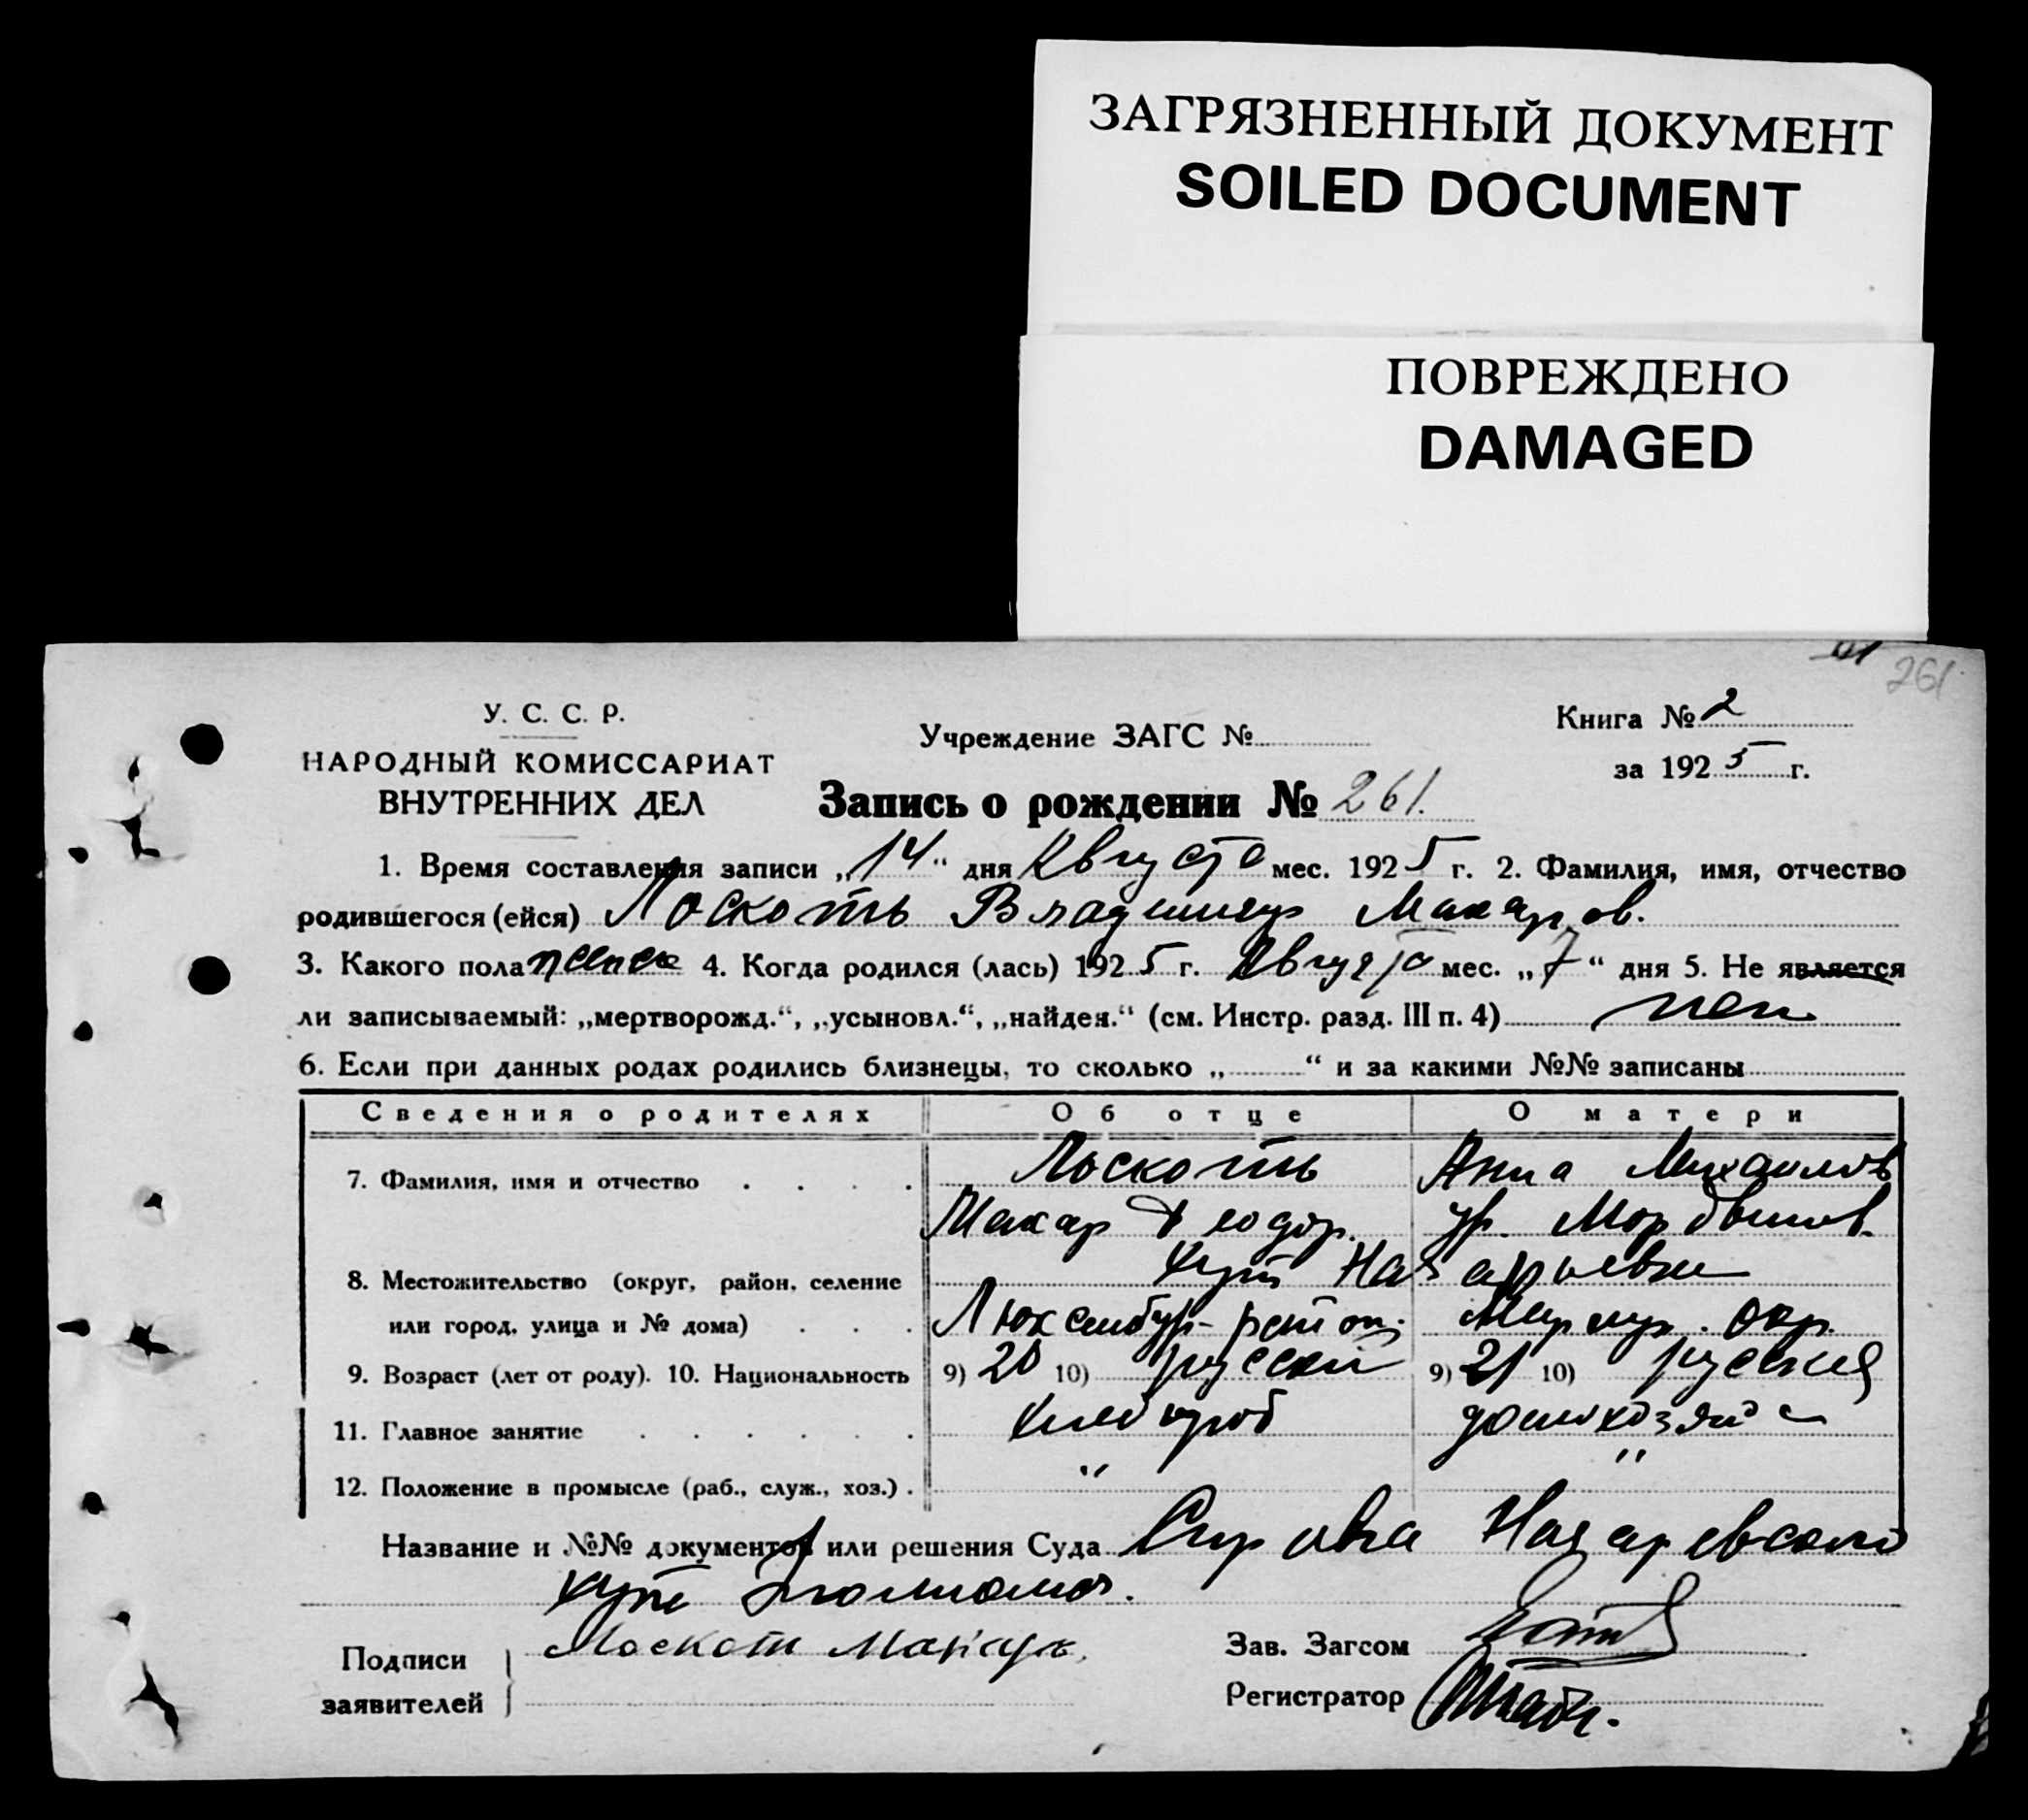 ЗАГРЯЗНЕННЫЙ ДОКУМЕНТ
SOILED DOCUMENT
ПОВРЕЖДЕНО
DAMAGED
261
У. С. С. Р.
НАРОДНЫЙ КОМИССАРИАТ
ВНУТРЕННИХ ДЕЛ
Учреждение ЗАГС №
Книга № 2
за 1925 г.
Запись о рождении № 261.
1. Время составления записи „14“ дня Августа мес. 1925 г. 2. Фамилия, имя, отчество
родившегося (ейся) Лоскоть Владимир Макаров.
3. Какого пола 4. Когда родился (лась) 1925 г. Августа мес. „7“ дня 5. Не является
ли записываемый: „мертворожд.“, „усыновл.“, „найден.“ (см. Инстр. разд. III п. 4) нет
6. Если при данных родах родились близнецы, то сколько „ “ и за какими №№ записаны
Сведения о родителях Об отце О матери
7. Фамилия, имя и отчество Лоскоть Анна Михайлов
Макар Феодор. ур. Мордвинов.
8. Местожительство (округ, район, селение хут Назарьевка
или город, улица и № дома) Люксембур. район. Мариуп. окр.
9. Возраст (лет от роду). 10. Национальность 9) 20 10) русский 9) 21 10) русская
11. Главное занятие хлебороб домохозяйс
12. Положение в промысле (раб., служ., хоз.) . " "
Название и №№ документов или решения Суда Справка Назаревского
хут
Подписи
заявителей
Лоскот Макар.
Зав. Загсом
Регистратор